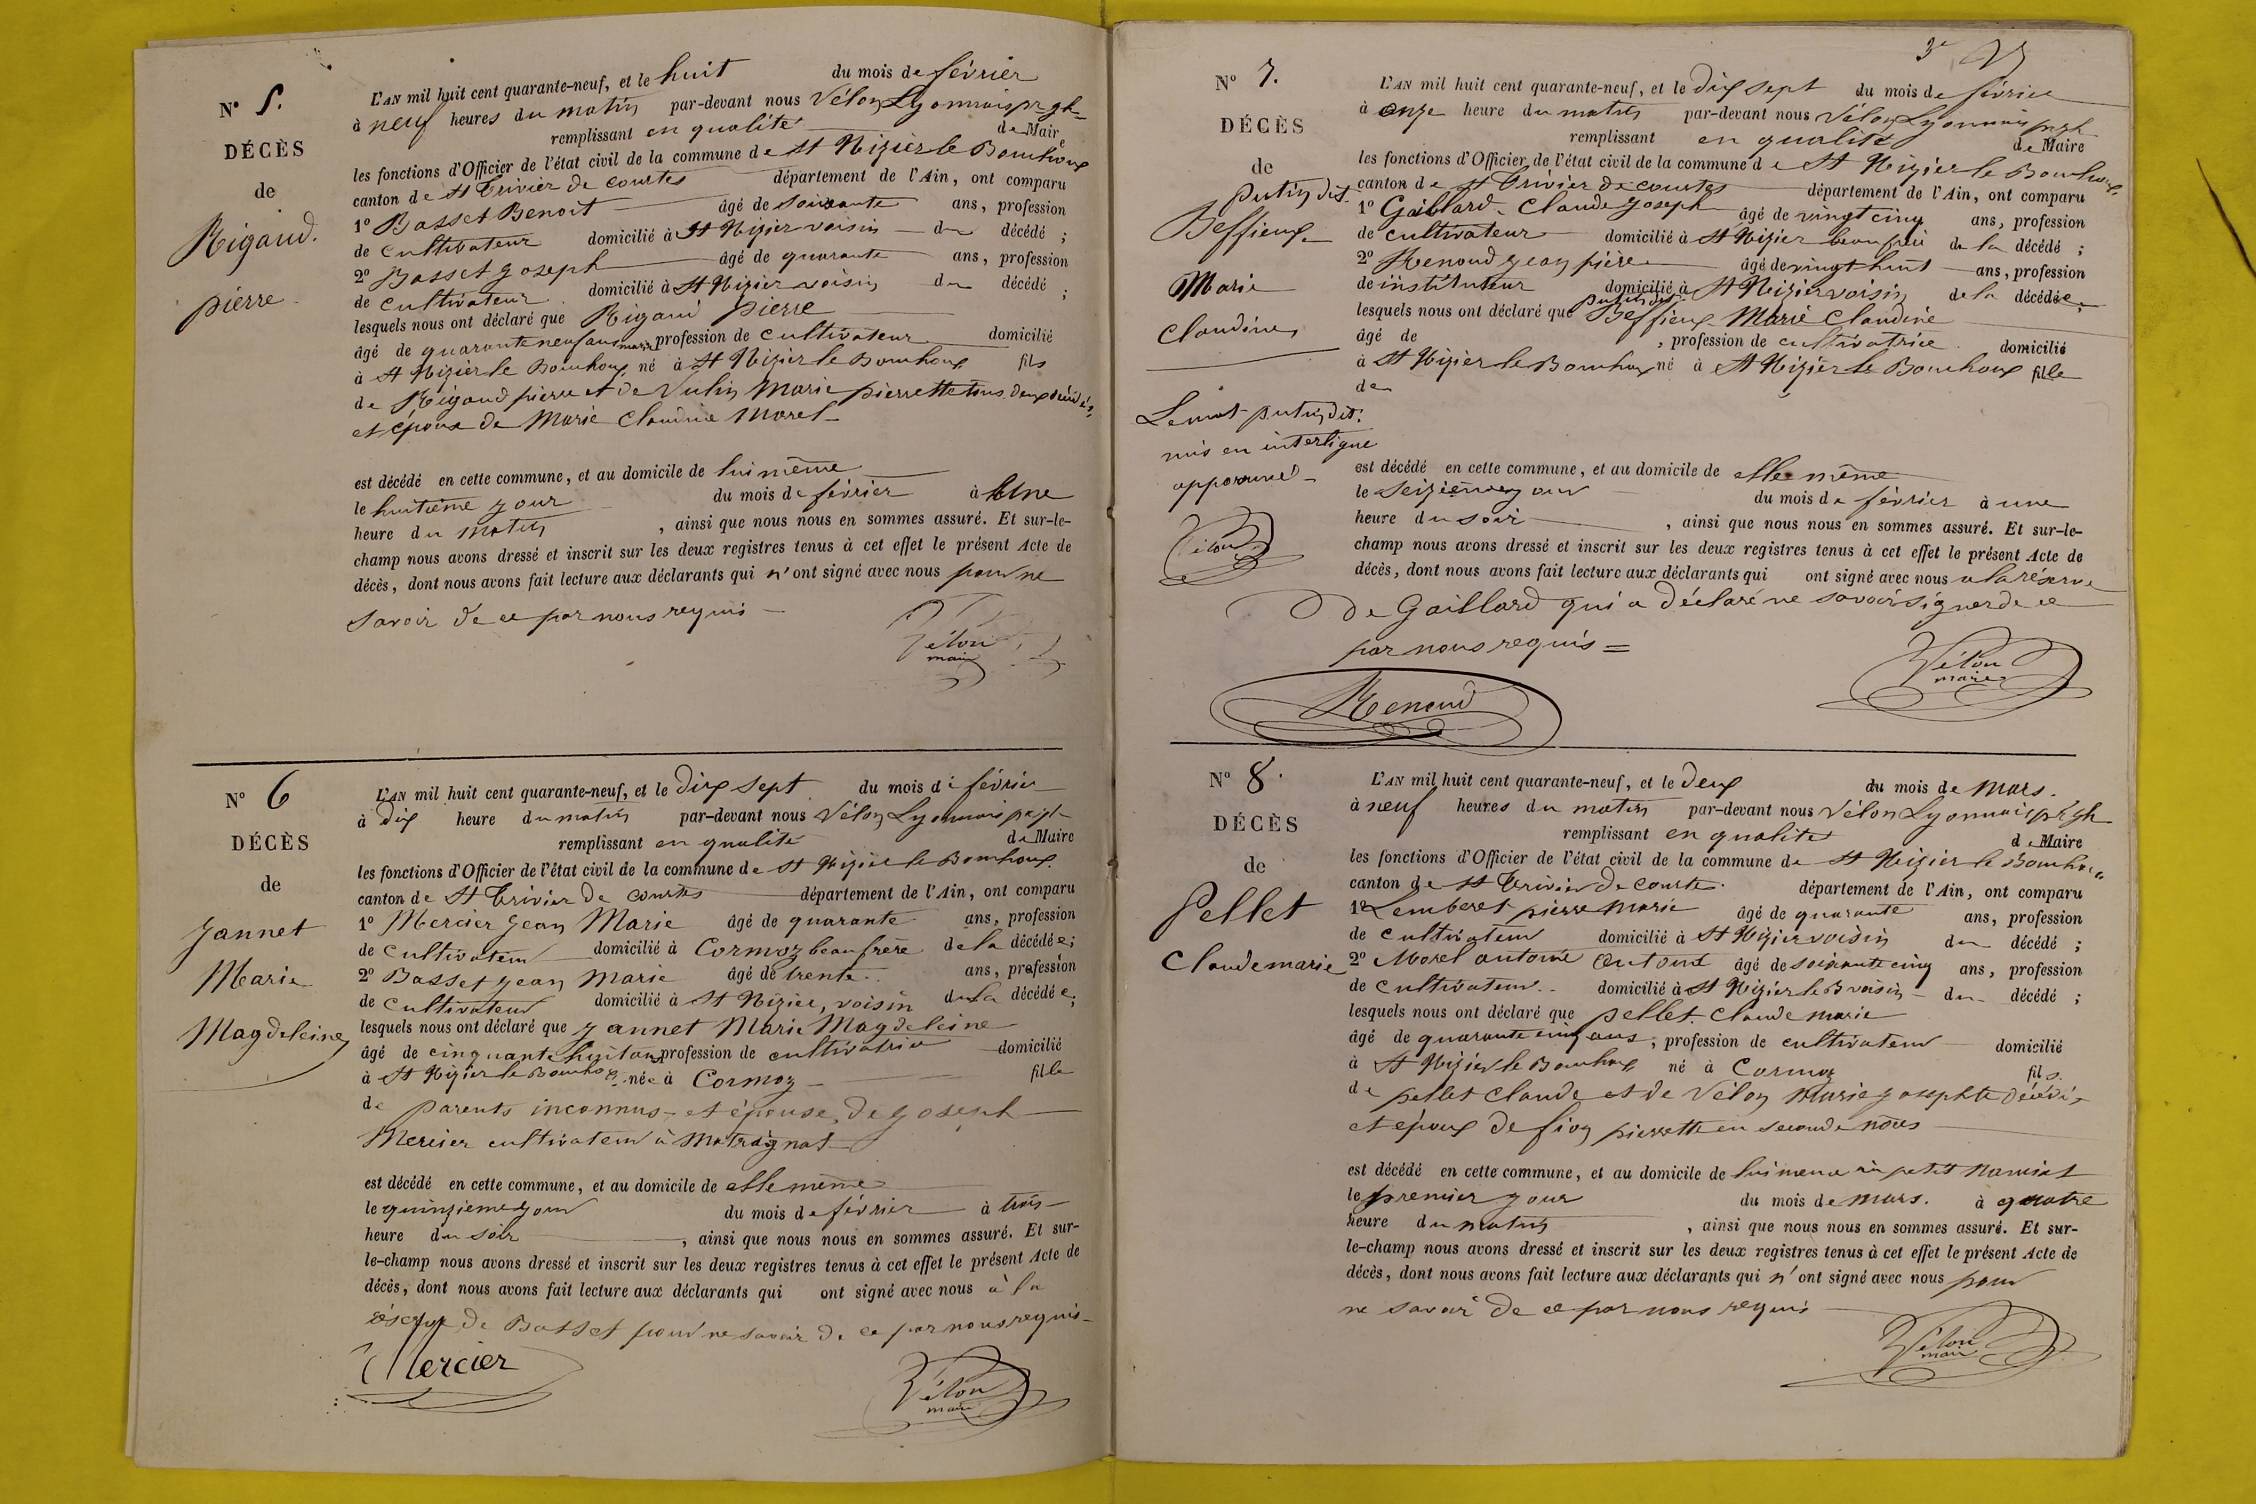 N° 5.
DÉCÈS
de
Rigaud.
pierre
L'AN mil huit cent quarante-neuf, et le huit du mois de février
à neuf heures du matin par-devant nous Vélon Lyonnois
remplissant en qualité de Maire
les fonctions d'Officier de l'état civil de la commune de St Nizier le Bouchoux
canton de St Trivier de courtes département de l'Ain, ont comparu
1° Basset Benoit âgé de soixante ans, profession
de cultivateur domicilié à St Nizier voisin du décédé ;
2° Basset joseph âgé de quarante ans, profession
de cultivateur domicilié à St Nizier voisin du décédé ;
lesquels nous ont déclaré que Rigaud pierre
âgé de quarante neuf ans profession de cultivateur domicilié
à St Nizier le Bouchoux né à St Nizier le Bouchoux fils
de Rigaud pierre et de Vulin Marie pierrette tous deux décédés,
et époux de Marie Claudine Morel
est décédé en cette commune, et au domicile de lui même
le huitième jour du mois de février à Une
heure du matin , ainsi que nous nous en sommes assuré. Et sur-le-
champ nous avons dressé et inscrit sur les deux registres tenus à cet effet le présent Acte de
décès, dont nous avons fait lecture aux déclarants qui n'ont signé avec nous pour ne
savoir de ce par nous requis
Vélon
maire
N° 6
DÉCÈS
de
jannet
Marie
Magdeleine
L'AN mil huit cent quarante-neuf, et le dix sept du mois de février
à dix heure du matin par-devant nous Vélon Lyonnois
remplissant en qualité de Maire
les fonctions d'Officier de l'état civil de la commune de St Nizier le Bouchoux
canton de St Trivier de courtes département de l'Ain, ont comparu
1° Mercier jean Marie âgé de quarante ans, profession
de cultivateur domicilié à Cormoz beau frère de la décédée ;
2° Basset jean Marie âgé de trente ans, profession
de cultivateur domicilié à St Nizier, voisin de la décédée ;
lesquels nous ont déclaré que jannet Marie Magdeleine
âgé de cinquante huit ans profession de cultivatrice domicilié
à St Nizier le Bouchoux née à Cormoz fille
de parents inconnus et épouse de joseph
Mercier cultivateur à
est décédé en cette commune, et au domicile de elle même
le quinzieme jour du mois de février à trois
heure du soir , ainsi que nous nous en sommes assuré. Et sur-
le-champ nous avons dressé et inscrit sur les deux registres tenus à cet effet le présent Acte de
décès, dont nous avons fait lecture aux déclarants qui ont signé avec nous à la
réserve de Basset pour ne savoir de ce par nous requis
Mercier
Vélon
maire
3e
N° 7.
DÉCÈS
de
putin dit
Beffieux
Marie
Claudine
Le mot putin dit
mis en interligne
approuvé
Vélon
L'AN mil huit cent quarante-neuf, et le dix sept du mois de février
à onze heure du matin par-devant nous Vélon Lyonnois
remplissant en qualité de Maire
les fonctions d'Officier de l'état civil de la commune de St Nizier le Bouchoux
canton de St Trivier de courtes département de l'Ain, ont comparu
1° Gaillard Claude joseph âgé de vingt cinq ans, profession
de cultivateur domicilié à St Nizier beau frère de la décédé ;
2° Renoud jean pière âgé de vingt huit ans, profession
de instituteur domicilié à St Nizier voisin de la décédée
putin dit
lesquels nous ont déclaré que Beffieux Marie Claudine
âgé de , profession de cultivatrice domicilié
à St Nizier le Bouchoux né à St Nizier le Bouchoux fille
de
est décédé en cette commune, et au domicile de elle même
le seizième jour du mois de février à une
heure du soir , ainsi que nous nous en sommes assuré. Et sur-le-
champ nous avons dressé et inscrit sur les deux registres tenus à cet effet le présent Acte de
décès, dont nous avons fait lecture aux déclarants qui ont signé avec nous a la réserve
De Gaillard qui a déclaré ne savoir signer de ce
par nous requis =
Renoud
Vélon
maire
N° 8.
DÉCÈS
de
Pellet
Claude marie
L'AN mil huit cent quarante-neuf, et le deux du mois de mars.
à neuf heures du matin par-devant nous Vélon Lyonnois
remplissant en qualité de Maire
les fonctions d'Officier de l'état civil de la commune de St Nizier le Bouchoux
canton de St Trivier de courtes département de l'Ain, ont comparu
1° Lemberet pierre Marie âgé de quarante ans, profession
de cultivateur domicilié à St Nizier voisin du décédé ;
2° Morel antoine âgé de soixante cinq ans, profession
de cultivateur domicilié à St Nizier le B voisin du décédé ;
lesquels nous ont déclaré que pellet Claude marie
âgé de quarante cinq ans, profession de cultivateur domicilié
à St Nizier le Bouchoux né à Cormoz fils
de pellet Claude et de Vélon Marie josephte décédés
et époux de fion pierrette en seconde noces
est décédé en cette commune, et au domicile de lui meme au petit
le premier jour du mois de mars. à quatre
heure du matin , ainsi que nous nous en sommes assuré. Et sur-
le-champ nous avons dressé et inscrit sur les deux registres tenus à cet effet le présent Acte de
décès, dont nous avons fait lecture aux déclarants qui n'ont signé avec nous pour
ne savoir de ce par nous requis
Vélon
maire